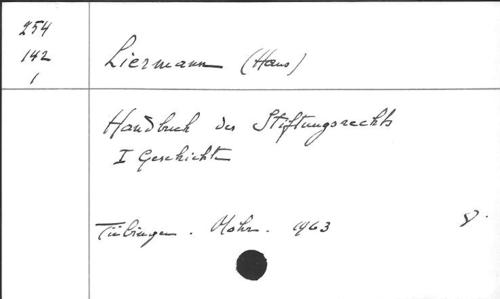 254
142
1
Liermann (Hans)
Handbuch des Stiftungsrechts
I Geschichte
Tübingen. Mohr. 1963
8.